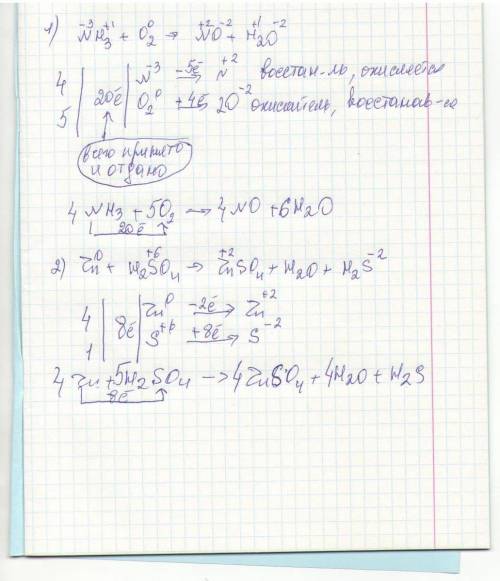 1) N⁻³H₃⁺¹ + O₂⁰ → N⁺²O⁻² + H₂⁺¹O⁻²
4 | 20ē | N⁻³ −5ē→ N⁺² восстан-ль, окисляется
5 | O₂⁰ +4ē→ 2O⁻² окислитель, восстанав-ся
всего принято
и отдано
4NH₃ + 5O₂ → 4NO + 6H₂O
20ē
2) Zn⁰ + H₂S⁺⁶O₄ → Zn⁺²SO₄ + H₂O + H₂S⁻²
4 | 8ē | Zn⁰ −2ē→ Zn⁺²
1 | S⁺⁶ +8ē→ S⁻²
4Zn + 5H₂SO₄ → 4ZnSO₄ + 4H₂O + H₂S
8ē